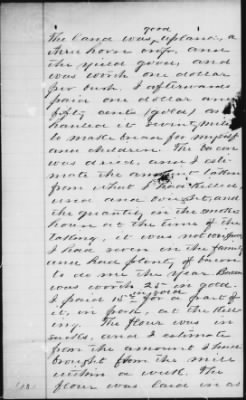 good
the land was upland, a
three horse crop, and
the yield good, and
was worth one dollar
per bush. I afterwards
paid one dollar and
fifty cents (gold) and
hauled it twenty miles
to make bread for myself
and children. The bacon
was dried, and I esti-
mate the amount taken
from what I had killed,
used and bought, and
the quantity in the smoke
house at the time of the
taking, it was not confused
I had seven in the family
and had plenty of bacon
to do me the year. Bacon
was worth 25 cts in gold.
I paid 15 cts gold for a part of
it, in pork, at the kill-
ing. The flour was in
sacks, and I estimate
from the amount I had
brought from the mill
within a week. The
flour was laid in as